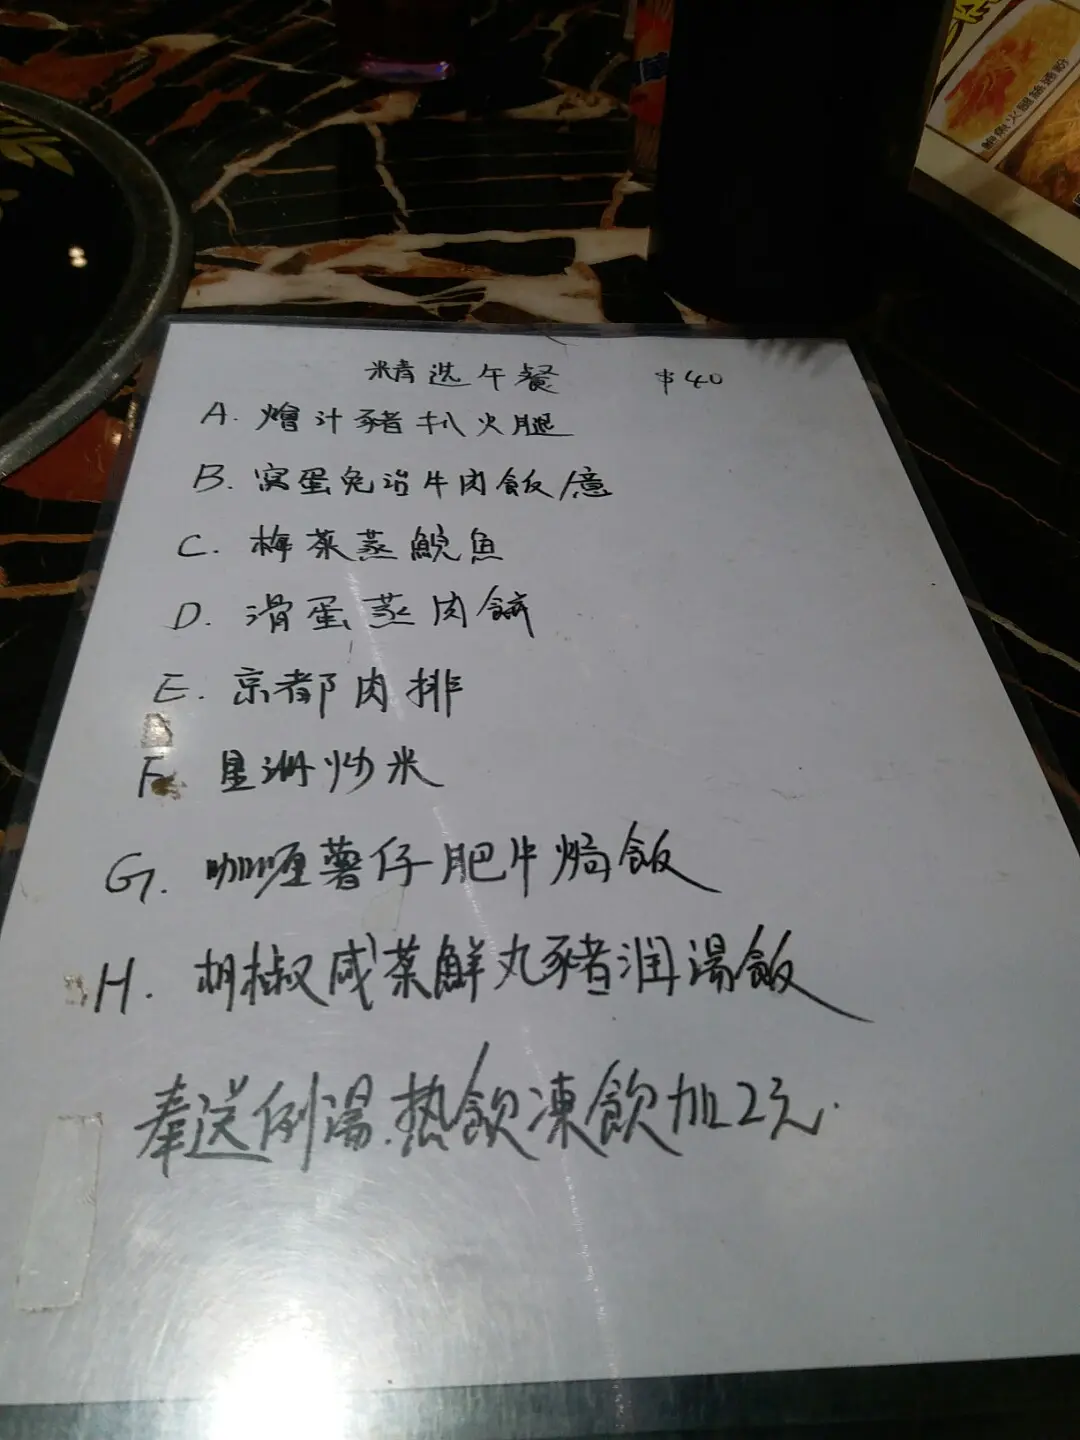 精选午餐 $40
A. 燴汁豬扒火腿
B. 窝蛋免治牛肉飯/意
C. 梅菜蒸鯇魚
D. 滑蛋蒸肉餅
E. 京都肉排
F. 星洲炒米
G. 咖喱薯仔肥牛焗飯
H. 胡椒咸菜鮮丸豬润湯飯
奉送例湯.热飲凍飲加2元.